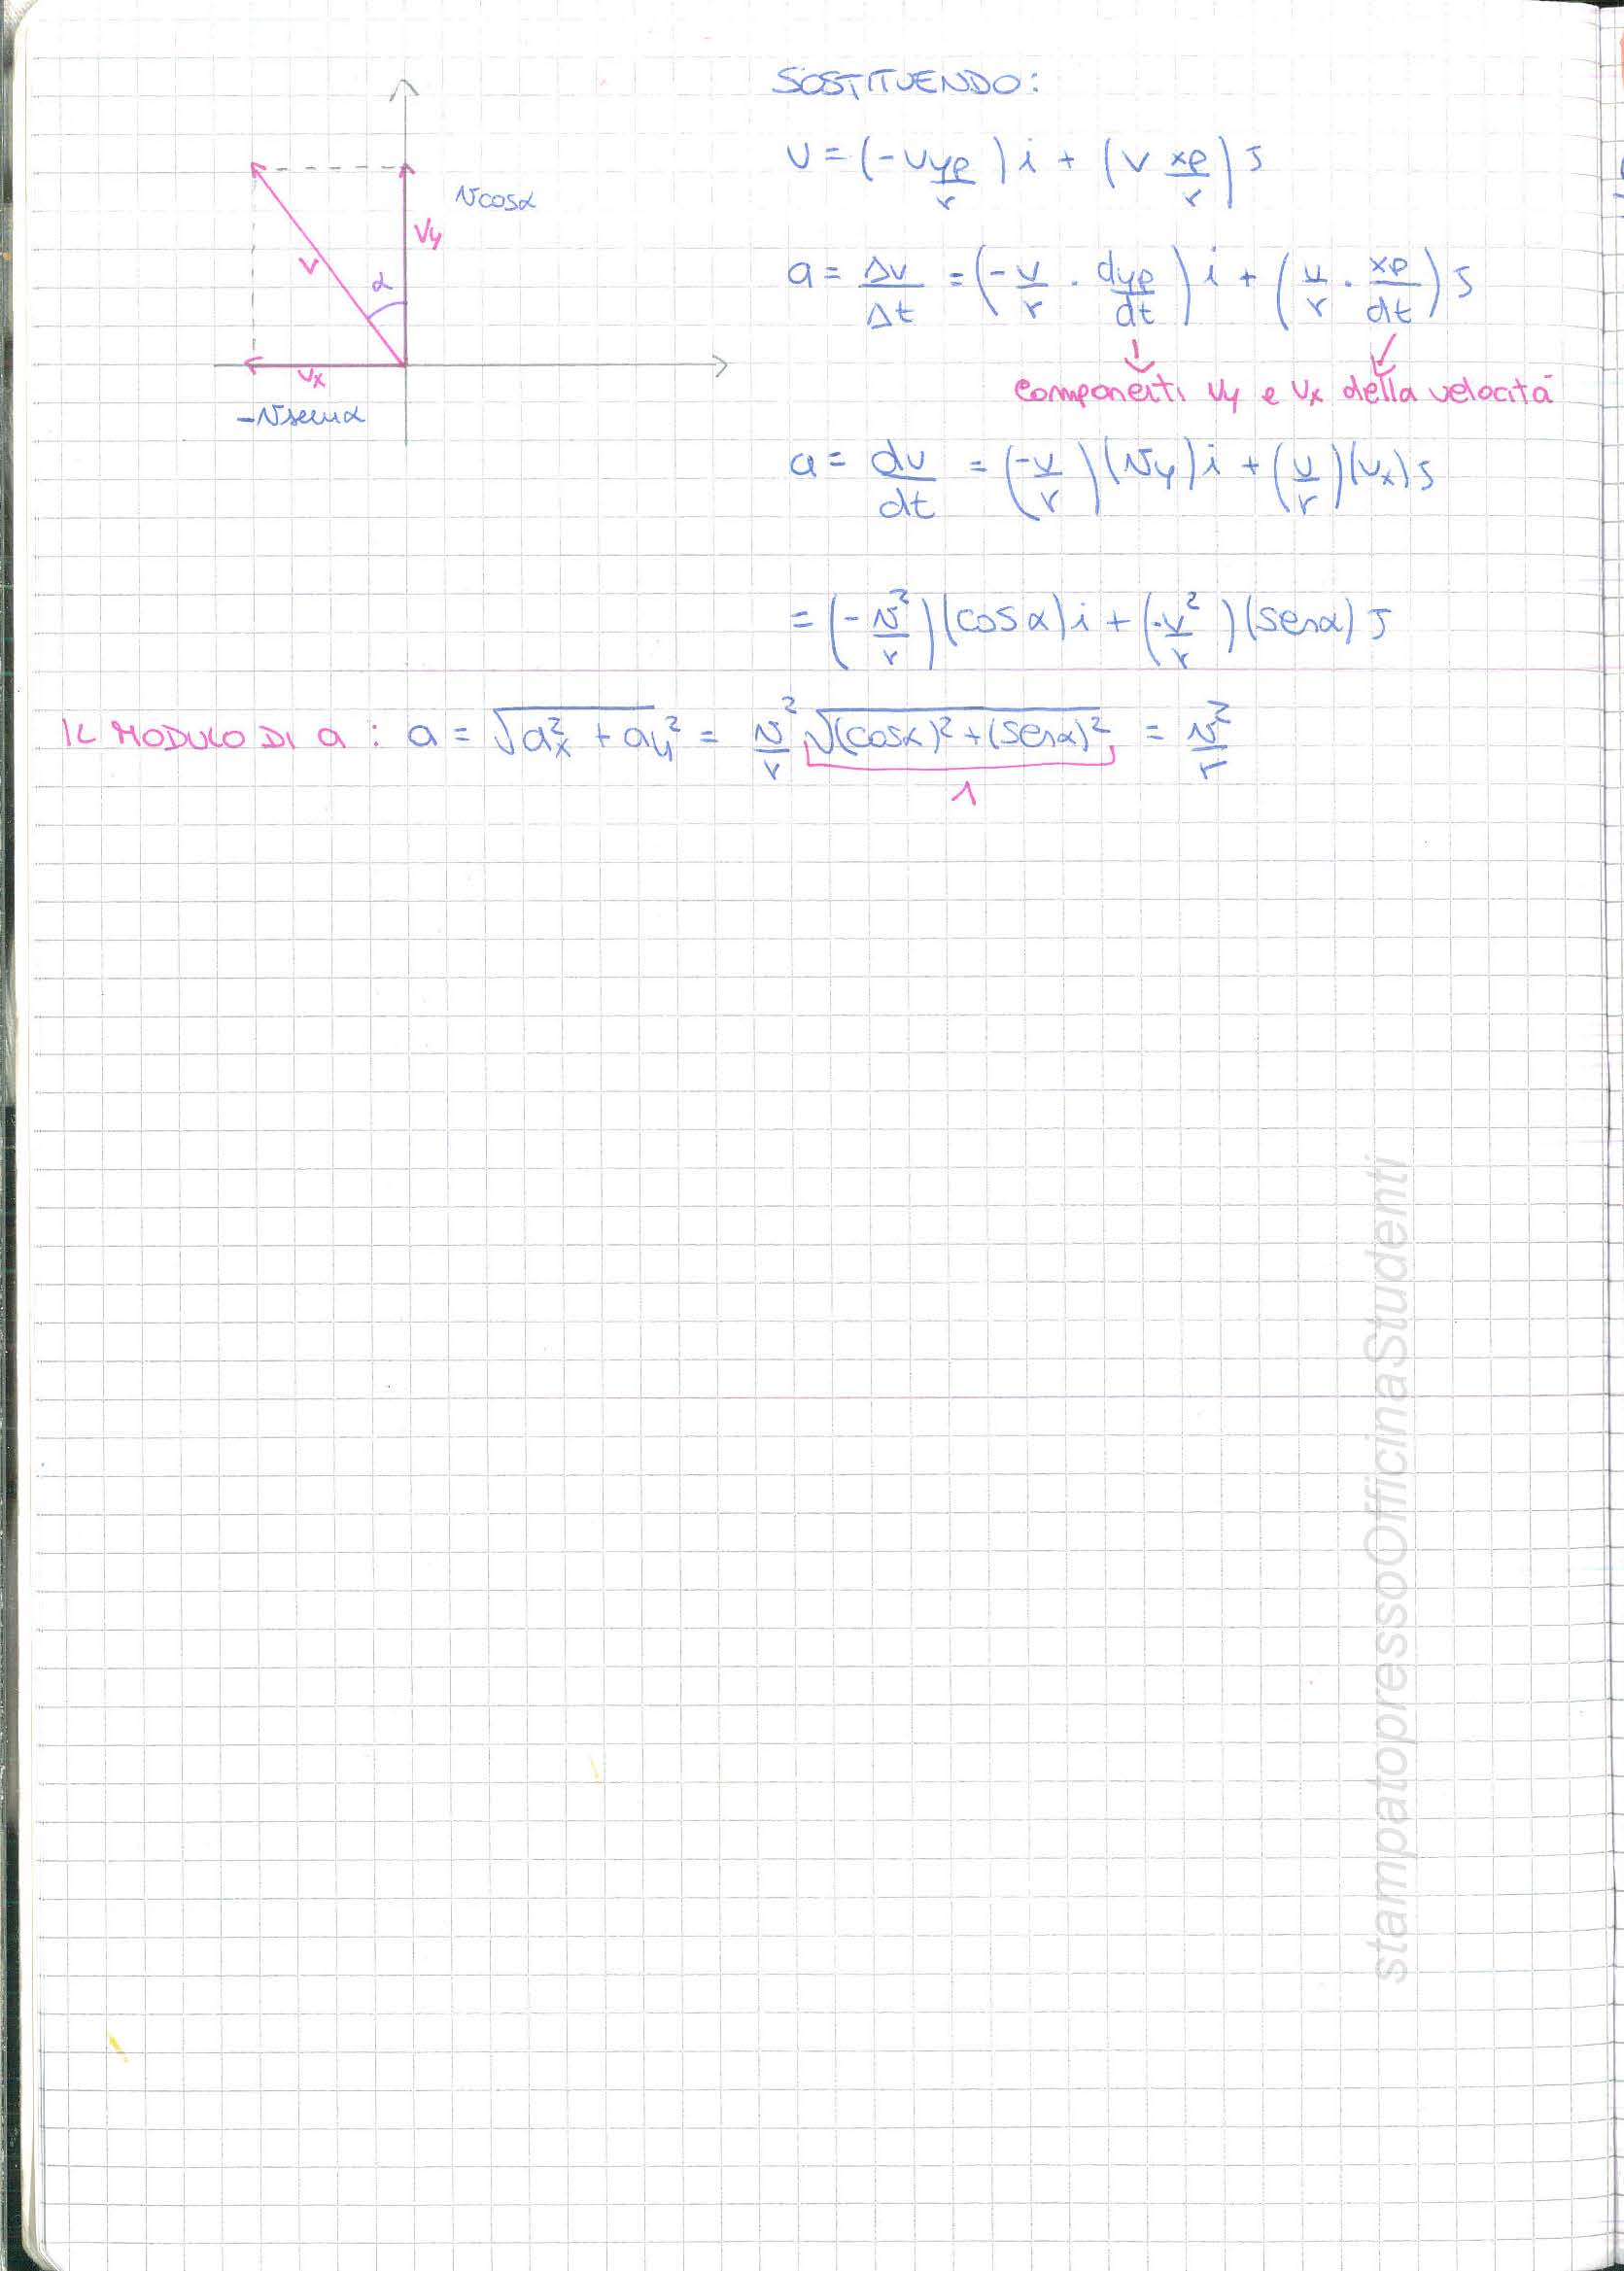 SOSTITUENDO:
v = (-v yp/r) i + (v xp/r) j
v cosα
vy
v
α
vx
-v senα
a = Δv/Δt = (-v/r · dyp/dt) i + (v/r · xp/dt) j
componenti vy e vx della velocità
a = dv/dt = (-v/r)(vy) i + (v/r)(vx) j
= (-v²/r)(cosα) i + (-v²/r)(senα) j
IL MODULO DI a : a = √ax² + ay² = v²/r √(cosα)² + (senα)² = v²/r
1
stampatopressoOfficinaStudenti